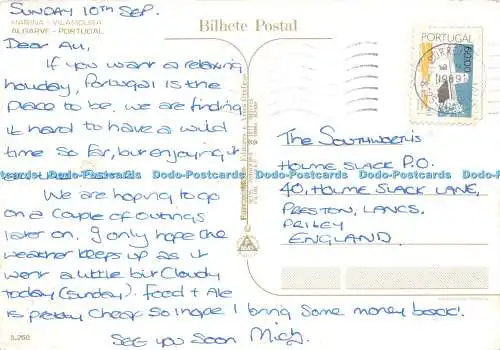 SUNDAY 10TH SEP.
MARINA - VILAMOURA
ALGARVE - PORTUGAL
Bilhete Postal
Dear All,
If you want a relaxing
holiday, Portugal is the
place to be. we are finding
it hard to have a wild
time so far, but enjoying it
We are hoping to go
on a couple of outings
later on. I only hope the
weather keeps up as it
went a little bit Cloudy
today (Sunday). Food + Ale
is pretty cheap so I hope I bring some money back!
SEE YOU SOON Mich
5.260
PORTUGAL
60.00
1989
The Southworth's
HOLME SLACK P.O.
40, HOLME SLACK LANE,
PRESTON, LANCS.
PR1 6EY
ENGLAND.
Dodo-Postcards Dodo-Postcards Dodo-Postcards Dodo-Postcards
Dodo-Postcards Dodo-Postcards Dodo-Postcards Dodo-Postcards